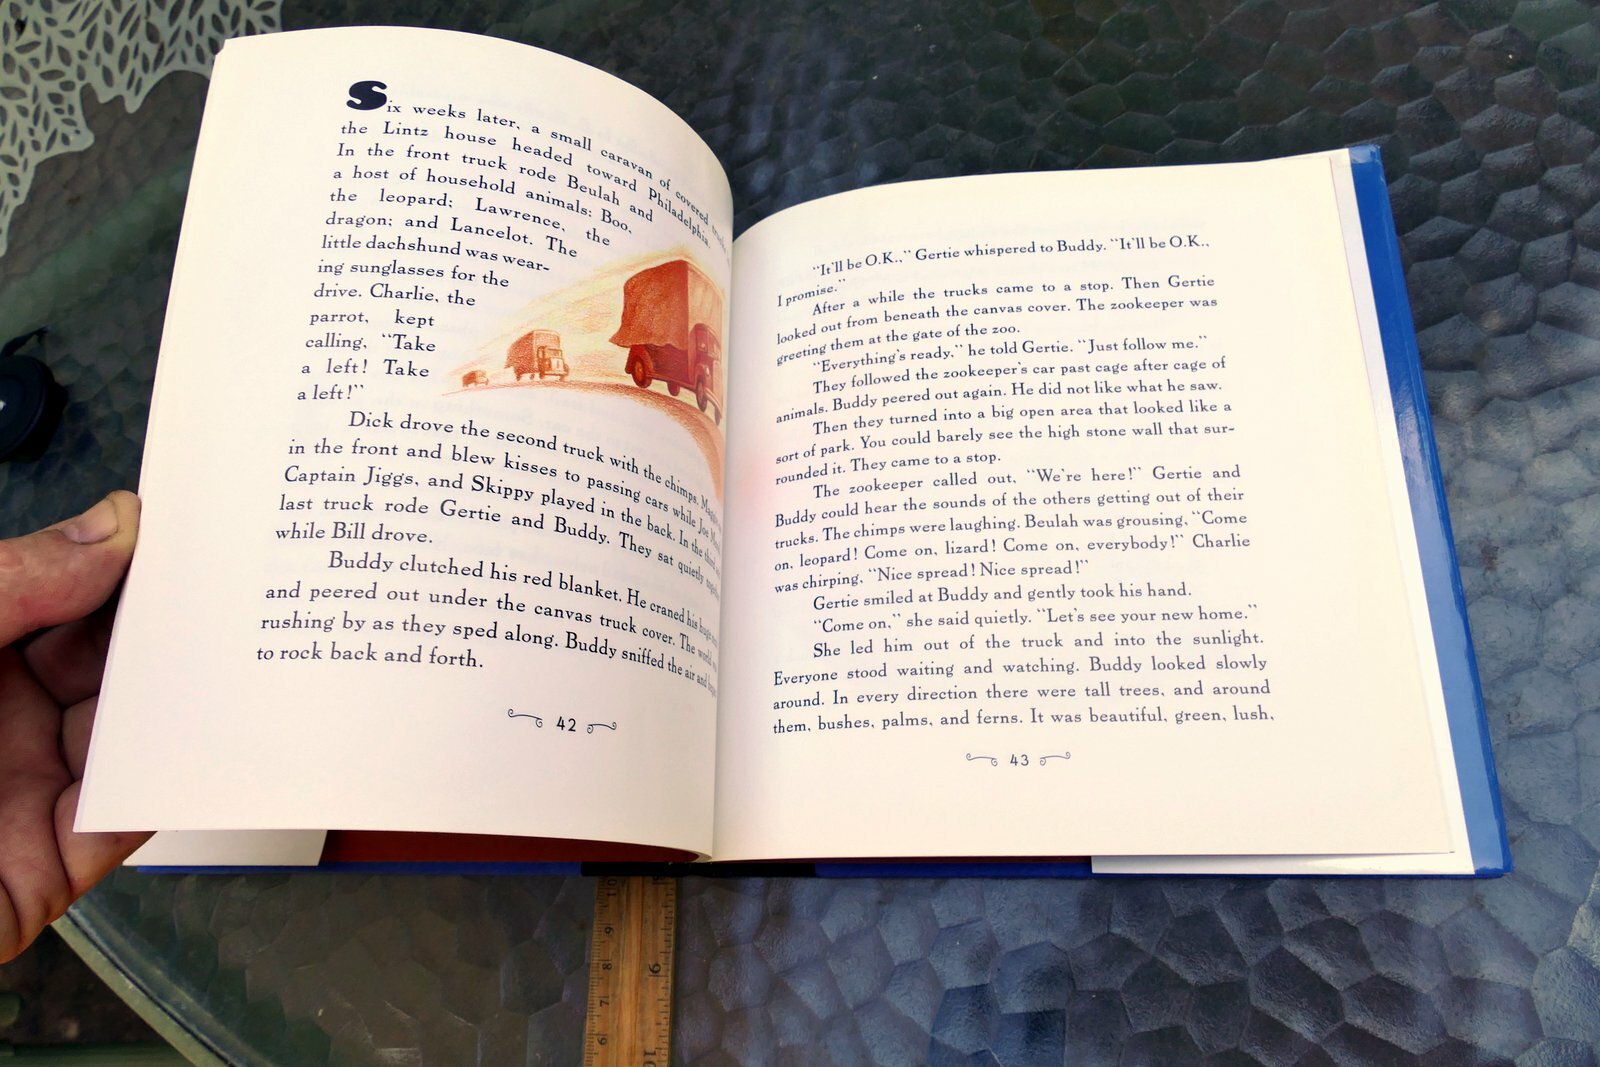 Six weeks later, a small caravan of covered trucks
the Lintz house headed toward Philadelphia.
In the front truck rode Beulah and
a host of household animals: Boo,
the leopard; Lawrence, the
dragon; and Lancelot. The
little dachshund was wear-
ing sunglasses for the
drive. Charlie, the
parrot, kept
calling, “Take
a left! Take
a left!”
Dick drove the second truck with the chimps.
in the front and blew kisses to passing cars while Joe
Captain Jiggs, and Skippy played in the back. In the third
last truck rode Gertie and Buddy. They sat quietly
while Bill drove.
Buddy clutched his red blanket. He craned his huge
and peered out under the canvas truck cover. The world
rushing by as they sped along. Buddy sniffed the air and
to rock back and forth.
42
“It'll be O.K.,” Gertie whispered to Buddy. “It'll be O.K.,
I promise.”
After a while the trucks came to a stop. Then Gertie
looked out from beneath the canvas cover. The zookeeper was
greeting them at the gate of the zoo.
“Everything's ready,” he told Gertie. “Just follow me.”
They followed the zookeeper's car past cage after cage of
animals. Buddy peered out again. He did not like what he saw.
Then they turned into a big open area that looked like a
sort of park. You could barely see the high stone wall that sur-
rounded it. They came to a stop.
The zookeeper called out, “We're here!” Gertie and
Buddy could hear the sounds of the others getting out of their
trucks. The chimps were laughing. Beulah was grousing, “Come
on, leopard! Come on, lizard! Come on, everybody!” Charlie
was chirping, “Nice spread! Nice spread!”
Gertie smiled at Buddy and gently took his hand.
“Come on,” she said quietly. “Let's see your new home.”
She led him out of the truck and into the sunlight.
Everyone stood waiting and watching. Buddy looked slowly
around. In every direction there were tall trees, and around
them, bushes, palms, and ferns. It was beautiful, green, lush,
43
10
9
8
7
6
9
10